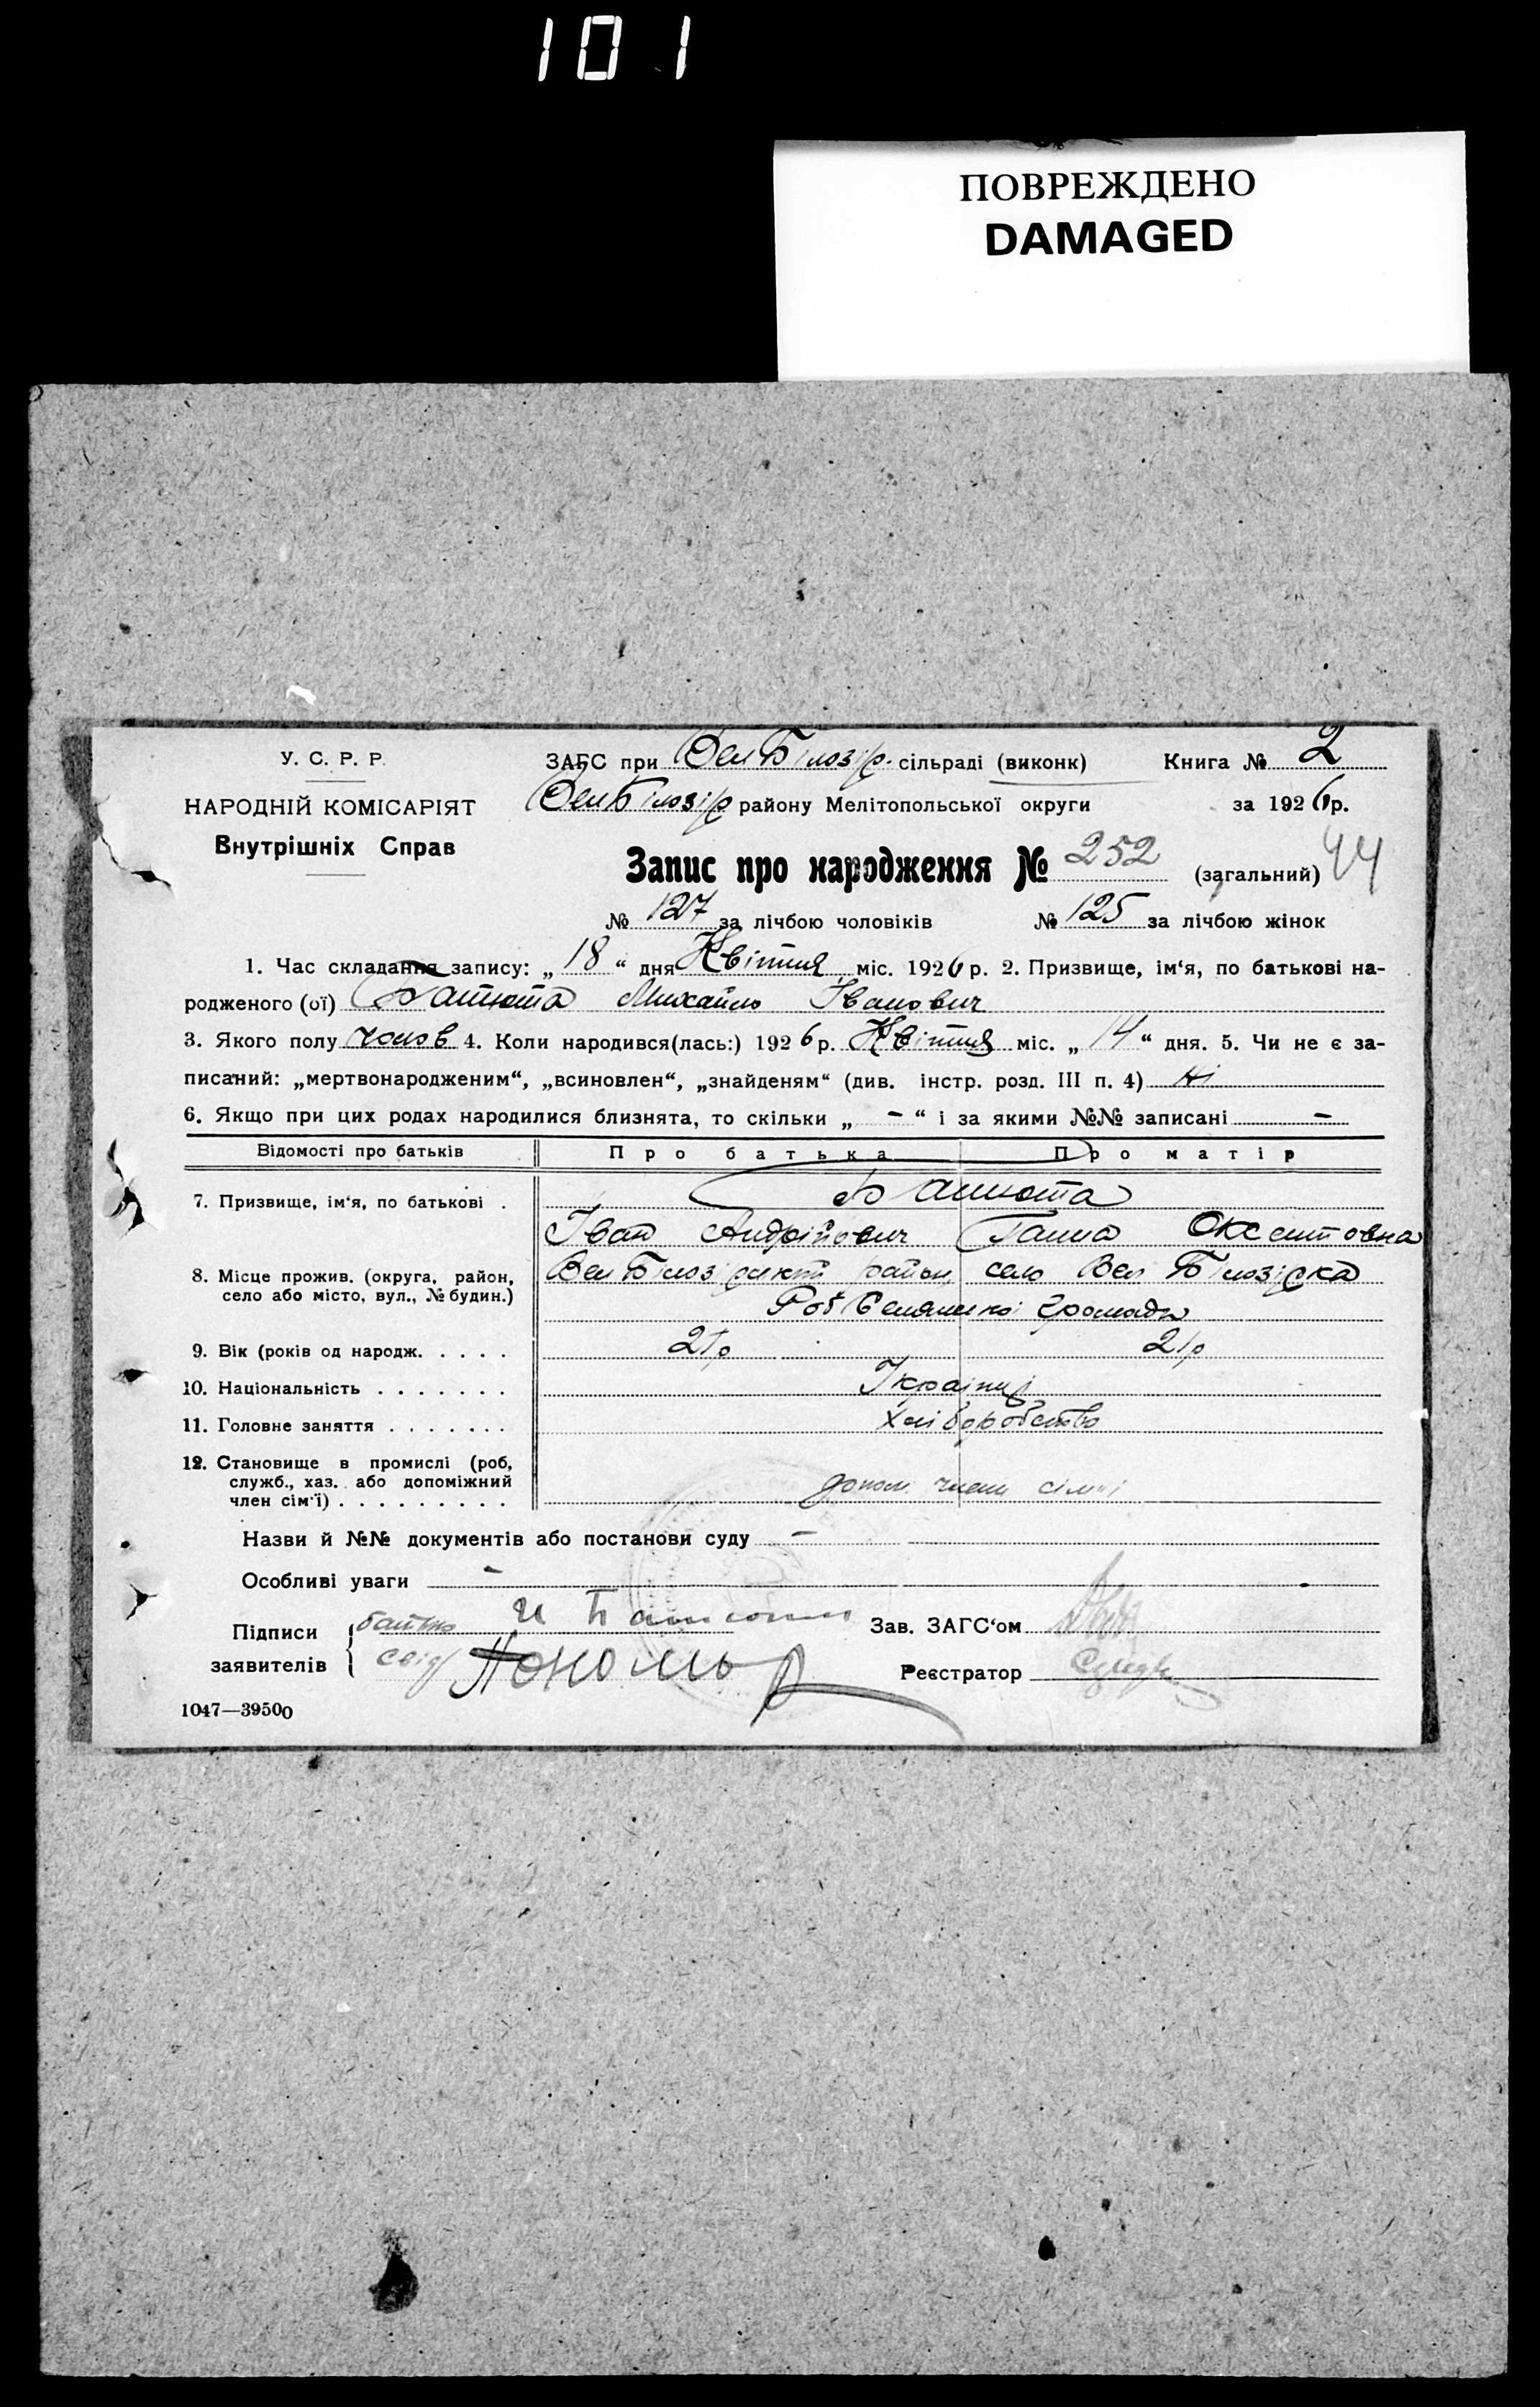 101
ПОВРЕЖДЕНО
DAMAGED
У. С. Р. Р.
НАРОДНІЙ КОМІСАРІЯТ
Внутрішніх Справ
ЗАГС при Вел Білозір. сільраді (виконк) Книга № 2
Вел Білозір району Мелітопольської округи за 1926 р.
Запис про народження № 252 (загальний) 44
№ 127 за лічбою чоловіків № 125 за лічбою жінок
1. Час складання запису: „ 18 “ дня Квітня міс. 1926 р. 2. Призвище, ім‘я, по батькові на-
родженого (ої) Батюта Михайло Іванович
3. Якого полу чолов 4. Коли народився(лась:) 1926 р. Квітня міс. „ 14 “ дня. 5. Чи не є за-
писаний: „мертвонародженим“, „всиновлен“, „знайденям“ (див. інстр. розд. III п. 4) Ні
6. Якщо при цих родах народилися близнята, то скільки „ - “ і за якими №№ записані -
Відомості про батьків Про батька Про матір
7. Призвище, ім‘я, по батькові . Батюта
Іван Андрійович Ганна Оксентовна
8. Місце прожив. (округа, район, село або місто, вул., № будин.) Вел Білозірськ район село Вел Білозірка
громади
9. Вік (років од народж. . . . . 21р 21р
10. Національність . . . . . . . Українці
11. Головне заняття . . . . . . . хліборобство
12. Становище в промислі (роб, служб., хаз. або допоміжний член сім‘ї) . . . . . . . . . допом. члени сімї
Назви й №№ документів або постанови суду -
Особливі уваги -
Підписи заявителів { батько И Батюта Зав. ЗАГС‘ом
свід Пономар Реєстратор
1047—39500